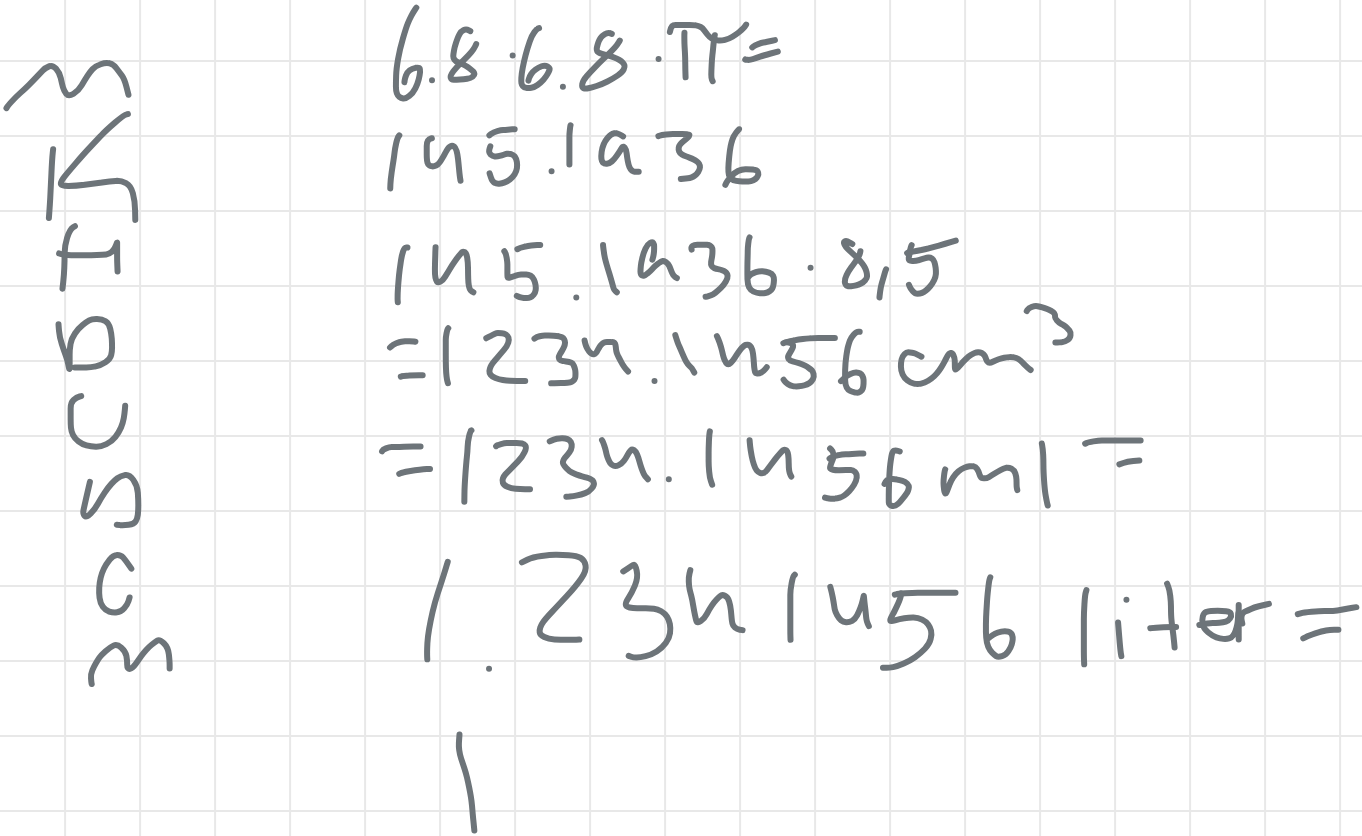 M
K
H
D
U
D
C
M
6.8·6.8·π=
145.1936
145.1936·8,5
=1234.1456 cm³
=1234.1456 ml =
1.2341456 liter =
1